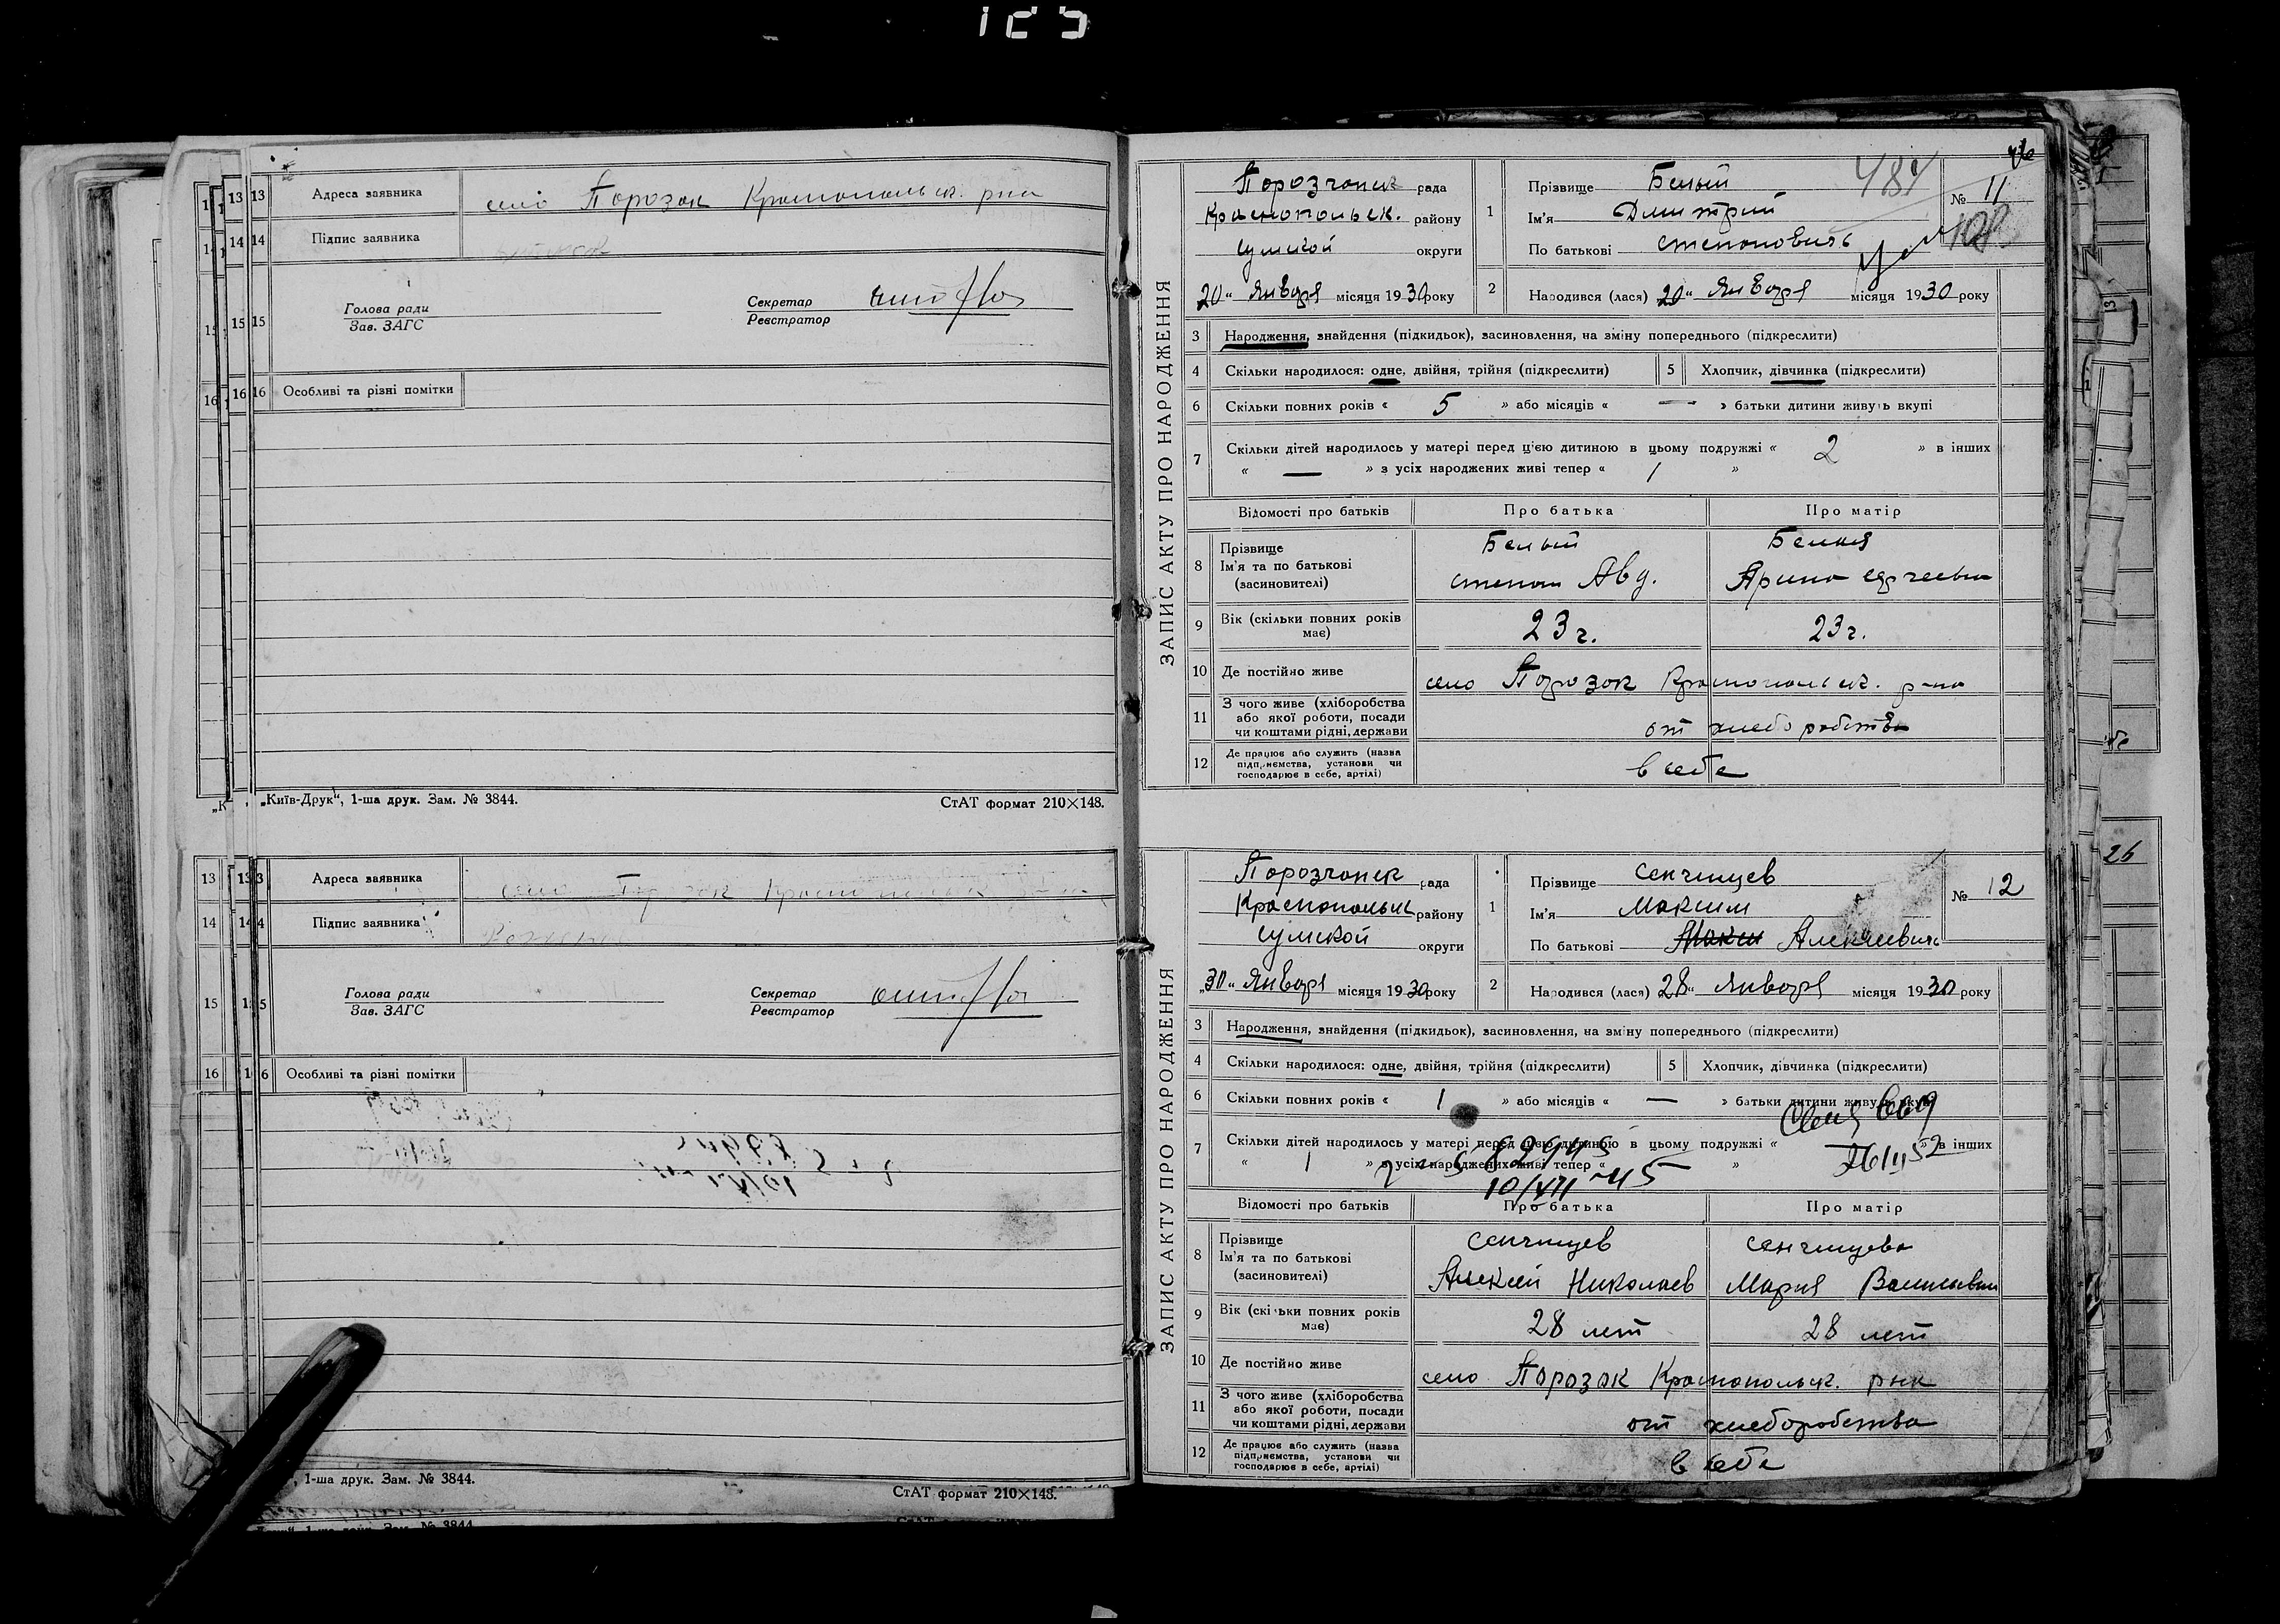 125
13 Адреса заявника село Порозок Краснопольск. рна
14 Підпис заявника
15 Голова ради
Зав. ЗАГС
Секретар
Реєстратор
16 Особливі та різні помітки
„Київ-Друк“, 1-ша друк. Зам. № 3844.
СтАТ формат 210×148.
13 Адреса заявника село Порозок Краснопольск
14 Підпис заявника
15 Голова ради
Зав. ЗАГС
Секретар
Реєстратор
16 Особливі та різні помітки
1-ша друк. Зам. № 3844.
СтАТ формат 210×148.
ЗАПИС АКТУ ПРО НАРОДЖЕННЯ
Порозчанск рада
Краснопольск. району
сумской округи
20 „ Января місяця 1930 року
1 Прізвище Белый
Ім'я Дмитрий
По батькові степанович
484
№ 11
2 Народився (лася) 20 „ Января місяця 1930 року
3 Народження, знайдення (підкидьок), засиновлення, на зміну попереднього (підкреслити)
4 Скільки народилося: одне, двійня, трійня (підкреслити)
5 Хлопчик, дівчинка (підкреслити)
6 Скільки повних років « 5 » або місяців « — » батьки дитини живуть вкупі
7 Скільки дітей народилось у матері перед цією дитиною в цьому подружжі « 2 » в інших
« — » з усіх народжених живі тепер « 1 »
Відомості про батьків Про батька Про матір
8 Прізвище
Ім'я та по батькові
(засиновителі)
Белый
степан Авд.
Белая
Арина сергеевна
9 Вік (скільки повних років
має)
23 г. 23 г.
10 Де постійно живе село Порозок Краснопольск. р-на
11 З чого живе (хліборобства
або якої роботи, посади
чи коштами рідні, держави
от хлеборобства
12 Де працює або служить (назва
підприємства, установи чи
господарює в себе, артілі)
в себе
ЗАПИС АКТУ ПРО НАРОДЖЕННЯ
Порозчанск рада
Краснопольск району
сумской округи
„30 „ Января місяця 1930 року
1 Прізвище сенчищев
Ім'я Максим
По батькові Алексеевич
№ 12
2 Народився (лася) 28 „ Января місяця 1930 року
3 Народження, знайдення (підкидьок), засиновлення, на зміну попереднього (підкреслити)
4 Скільки народилося: одне, двійня, трійня (підкреслити)
5 Хлопчик, дівчинка (підкреслити)
6 Скільки повних років « 1 » або місяців « — » батьки дитини живуть вкупі
7 Скільки дітей народилось у матері перед цією дитиною в цьому подружжі « » в інших
« 1 » з усіх народжених живі тепер « »
10/VII-45
Відомості про батьків Про батька Про матір
8 Прізвище
Ім'я та по батькові
(засиновителі)
сенчищев
Алексей Николаев
сенчищева
Мария Васильевна
9 Вік (скільки повних років
має)
28 лет 28 лет
10 Де постійно живе село Порозок Краснопольск. рнк
11 З чого живе (хліборобства
або якої роботи, посади
чи коштами рідні, держави
от хлеборобства
12 Де працює або служить (назва
підприємства, установи чи
господарює в себе, артілі)
в себе
26